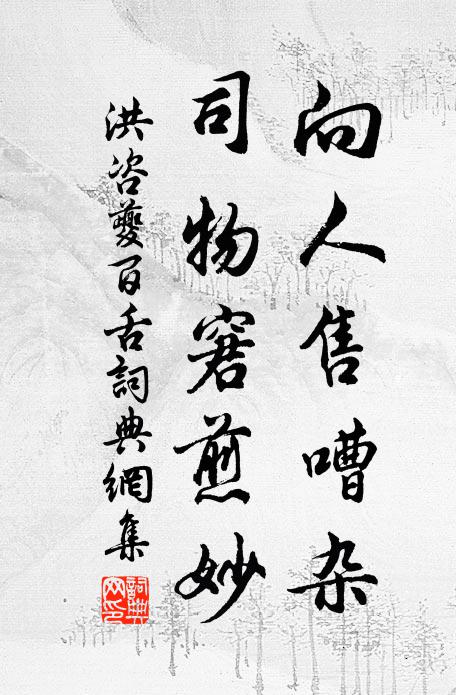 向人售嘈杂
司物窘煎妙
洪咨夔百舌詞典網集
詞典
网印